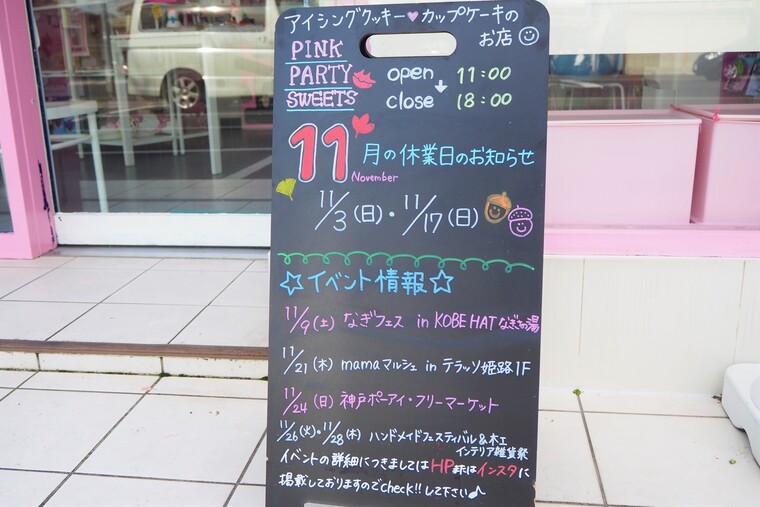 アイシングクッキー♥カップケーキの
お店
PINK
PARTY
SWEETS
open 11:00
↓
close 18:00
11
月の休業日のお知らせ
November
11/3(日)・11/17(日)
☆イベント情報☆
11/9(土) なぎフェス in KOBE HATなぎさの湯
11/21(木) mamaマルシェ in テラッソ姫路1F
11/24(日) 神戸ポーアイ・フリーマーケット
11/26(火)・11/28(木) ハンドメイドフェスティバル&木工
インテリア雑貨祭
イベントの詳細につきましてはHPまたはインスタに
掲載しておりますのでcheck!!して下さい♪